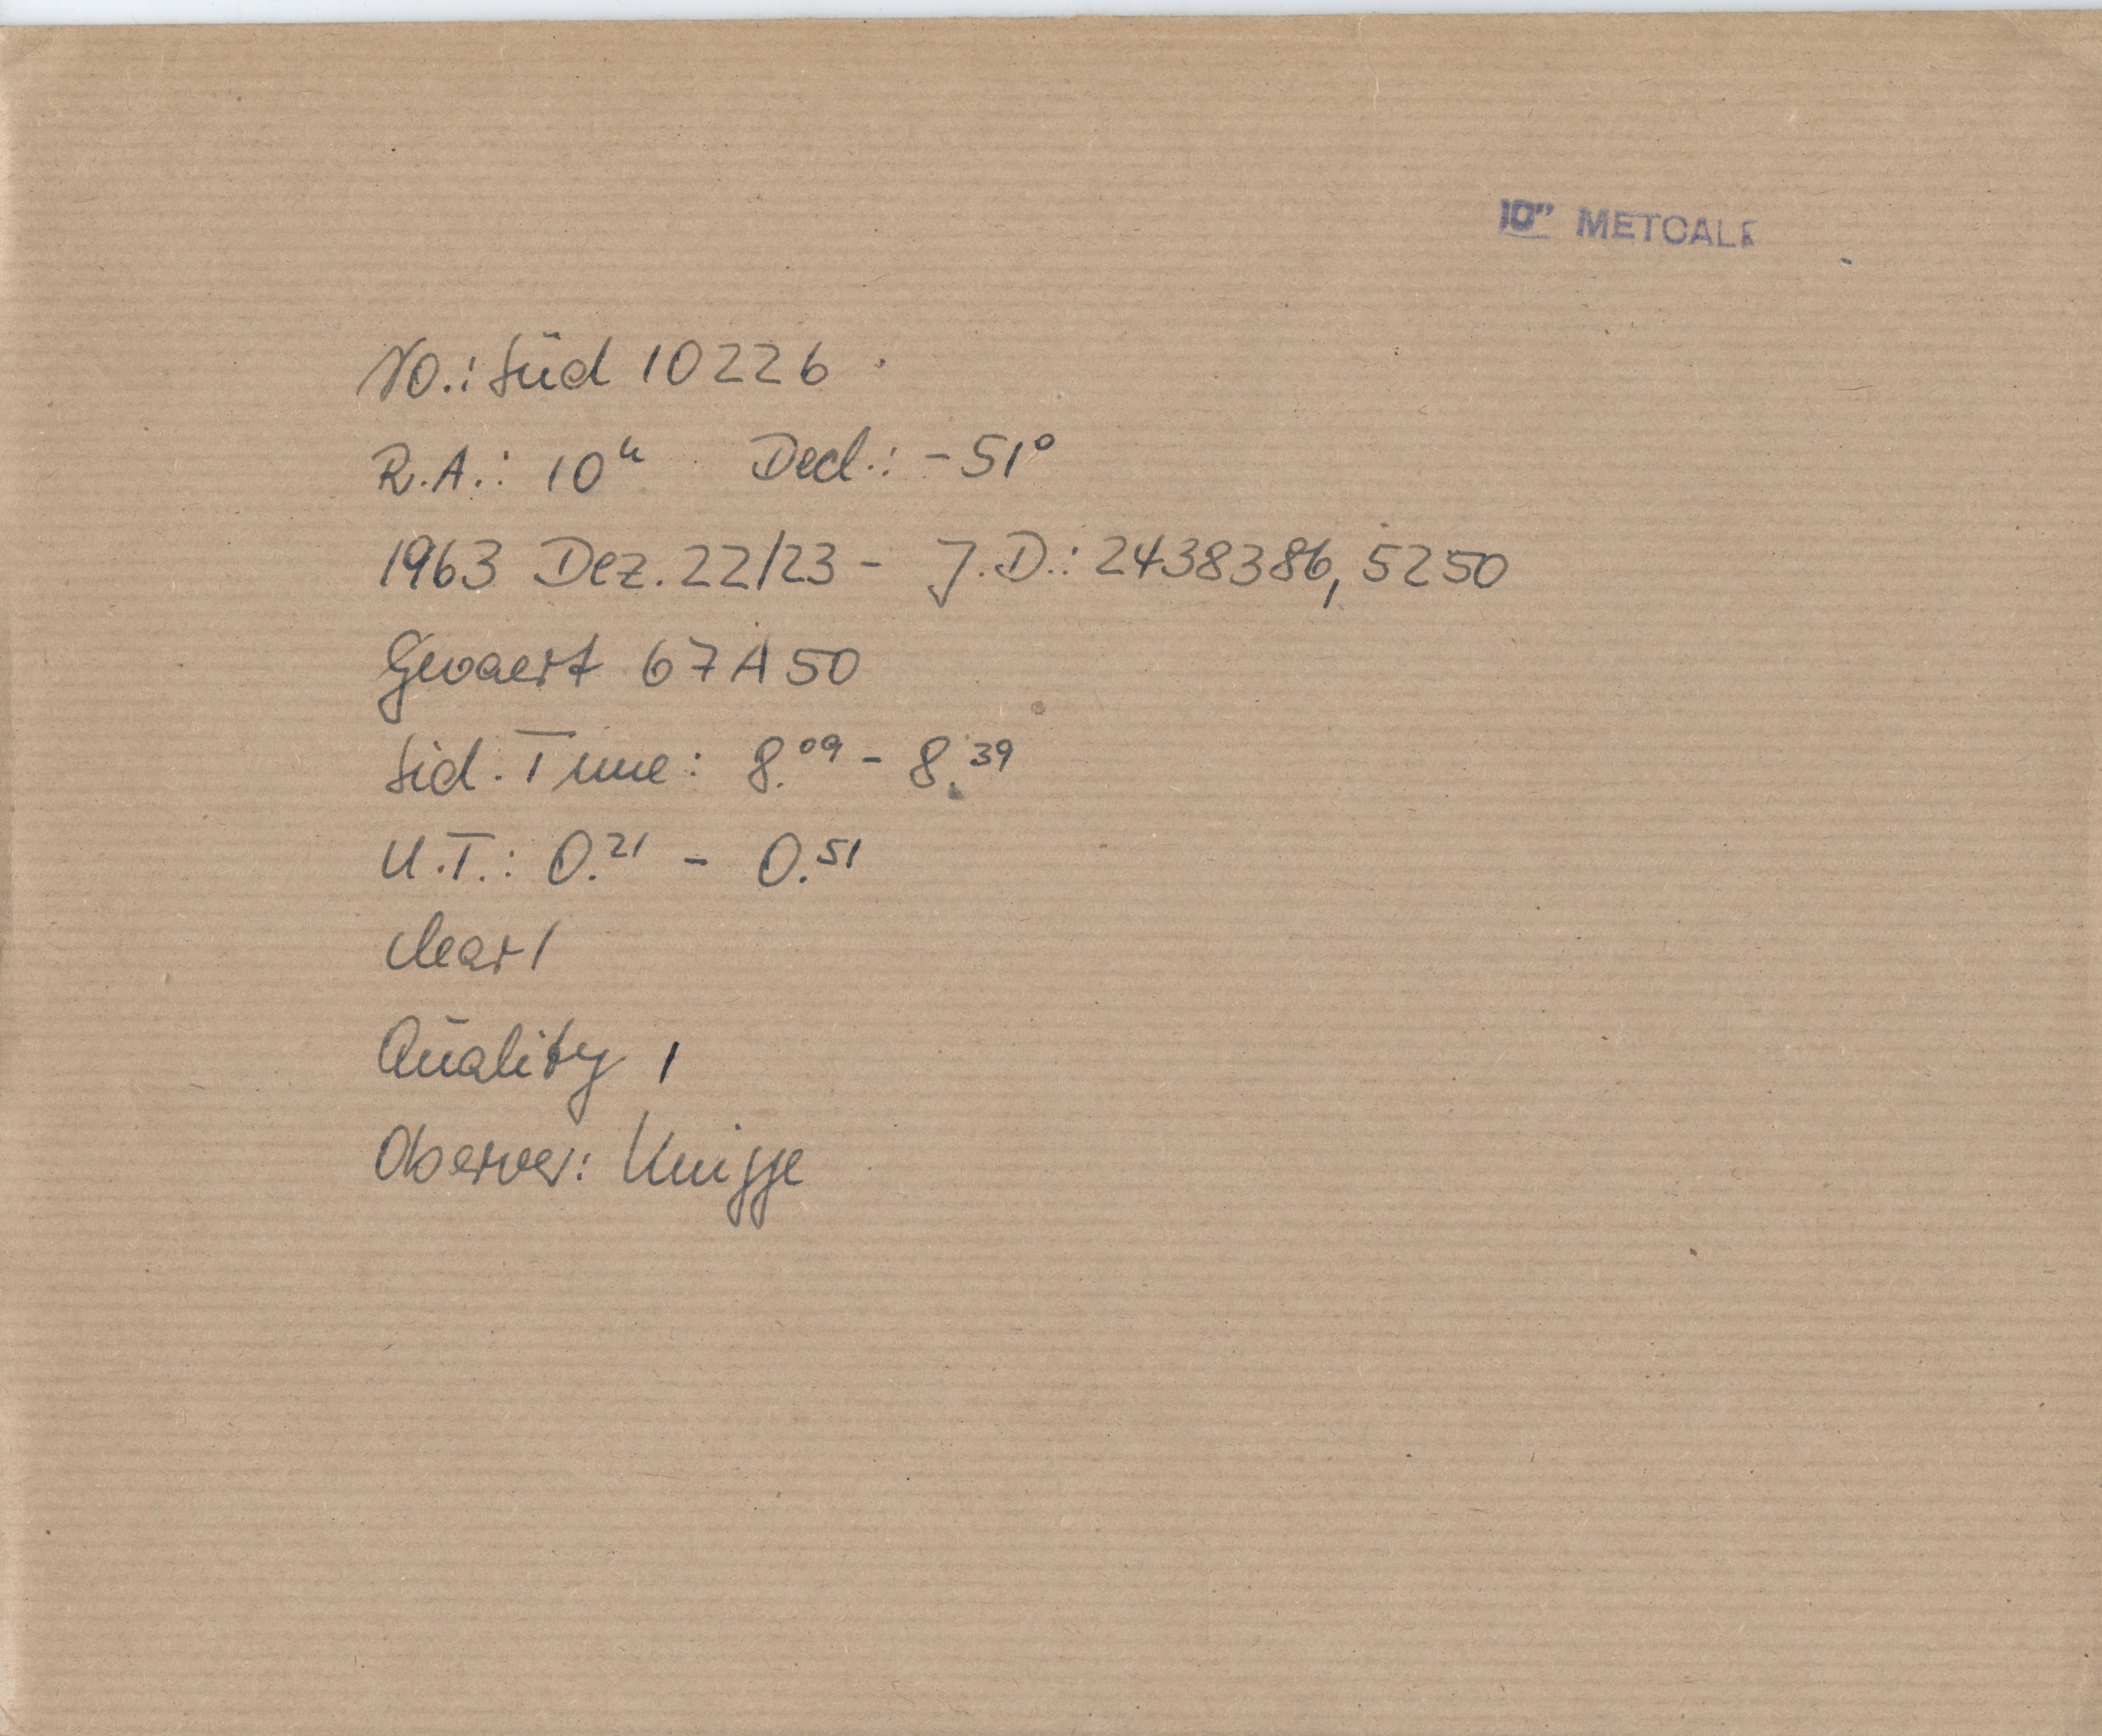 10" METCALF
No.: Süd 10226
R.A.: 10ʰ Decl.: -51°
1963 Dez. 22/23 - J.D.: 2438386,5250
Gevaert 67A50
Sid. Time: 8.⁰⁹ - 8.³⁹
U.T.: 0.²¹ - 0.⁵¹
clear!
Quality 1
Oberver: Knigge